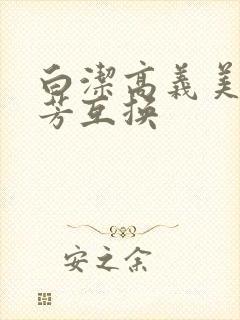 白潔高義美
芳互换
安之余